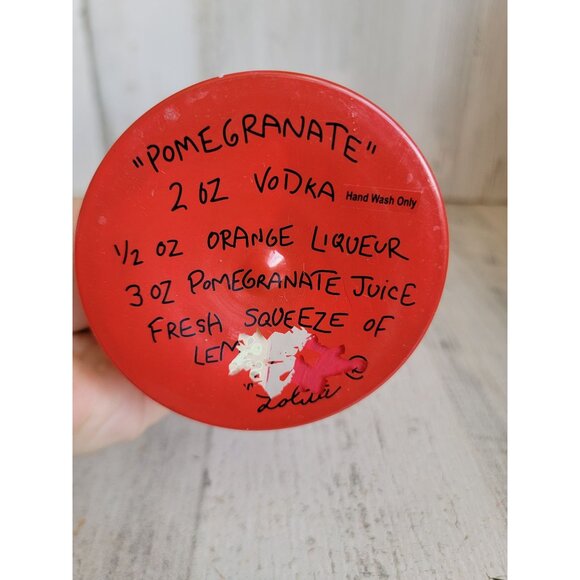 "POMEGRANATE"
2 OZ VODKA Hand Wash Only
1/2 OZ ORANGE LIQUEUR
3 OZ POMEGRANATE JUICE
FRESH SQUEEZE OF
"Lolita" ®